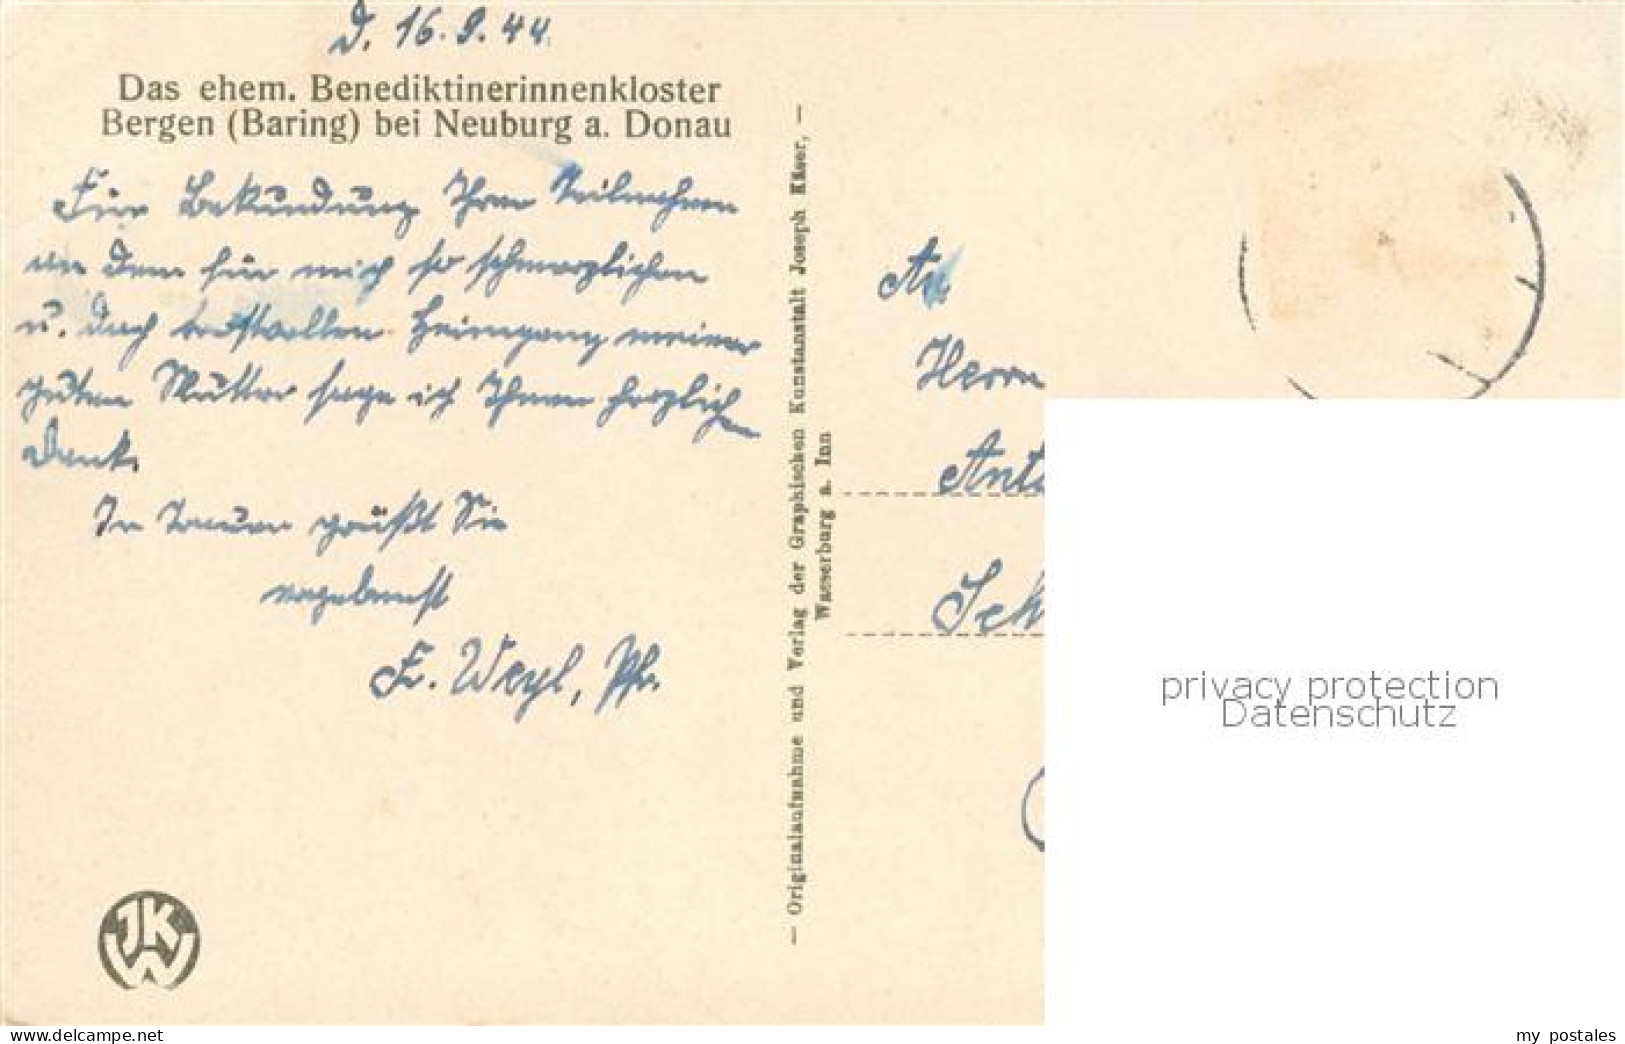 D. 16.9.44.
Das ehem. Benediktinerinnenkloster
Bergen (Baring) bei Neuburg a. Donau
Für Bekundung Ihrer Teilnahme
an dem für mich so schmerzlichen
u. doch trostvollen Heimgang meiner
guten Mutter sage ich Ihnen herzlichen
Dank.
In Trauer grüßt Sie
ergebenst
Weyl, Pfr.
— Originalaufnahme und Verlag der Graphischen Kunstanstalt Joseph Käser, —
Wasserburg a. Inn
An
Herrn
privacy protection
Datenschutz
JKW
my postales
www.delcampe.net